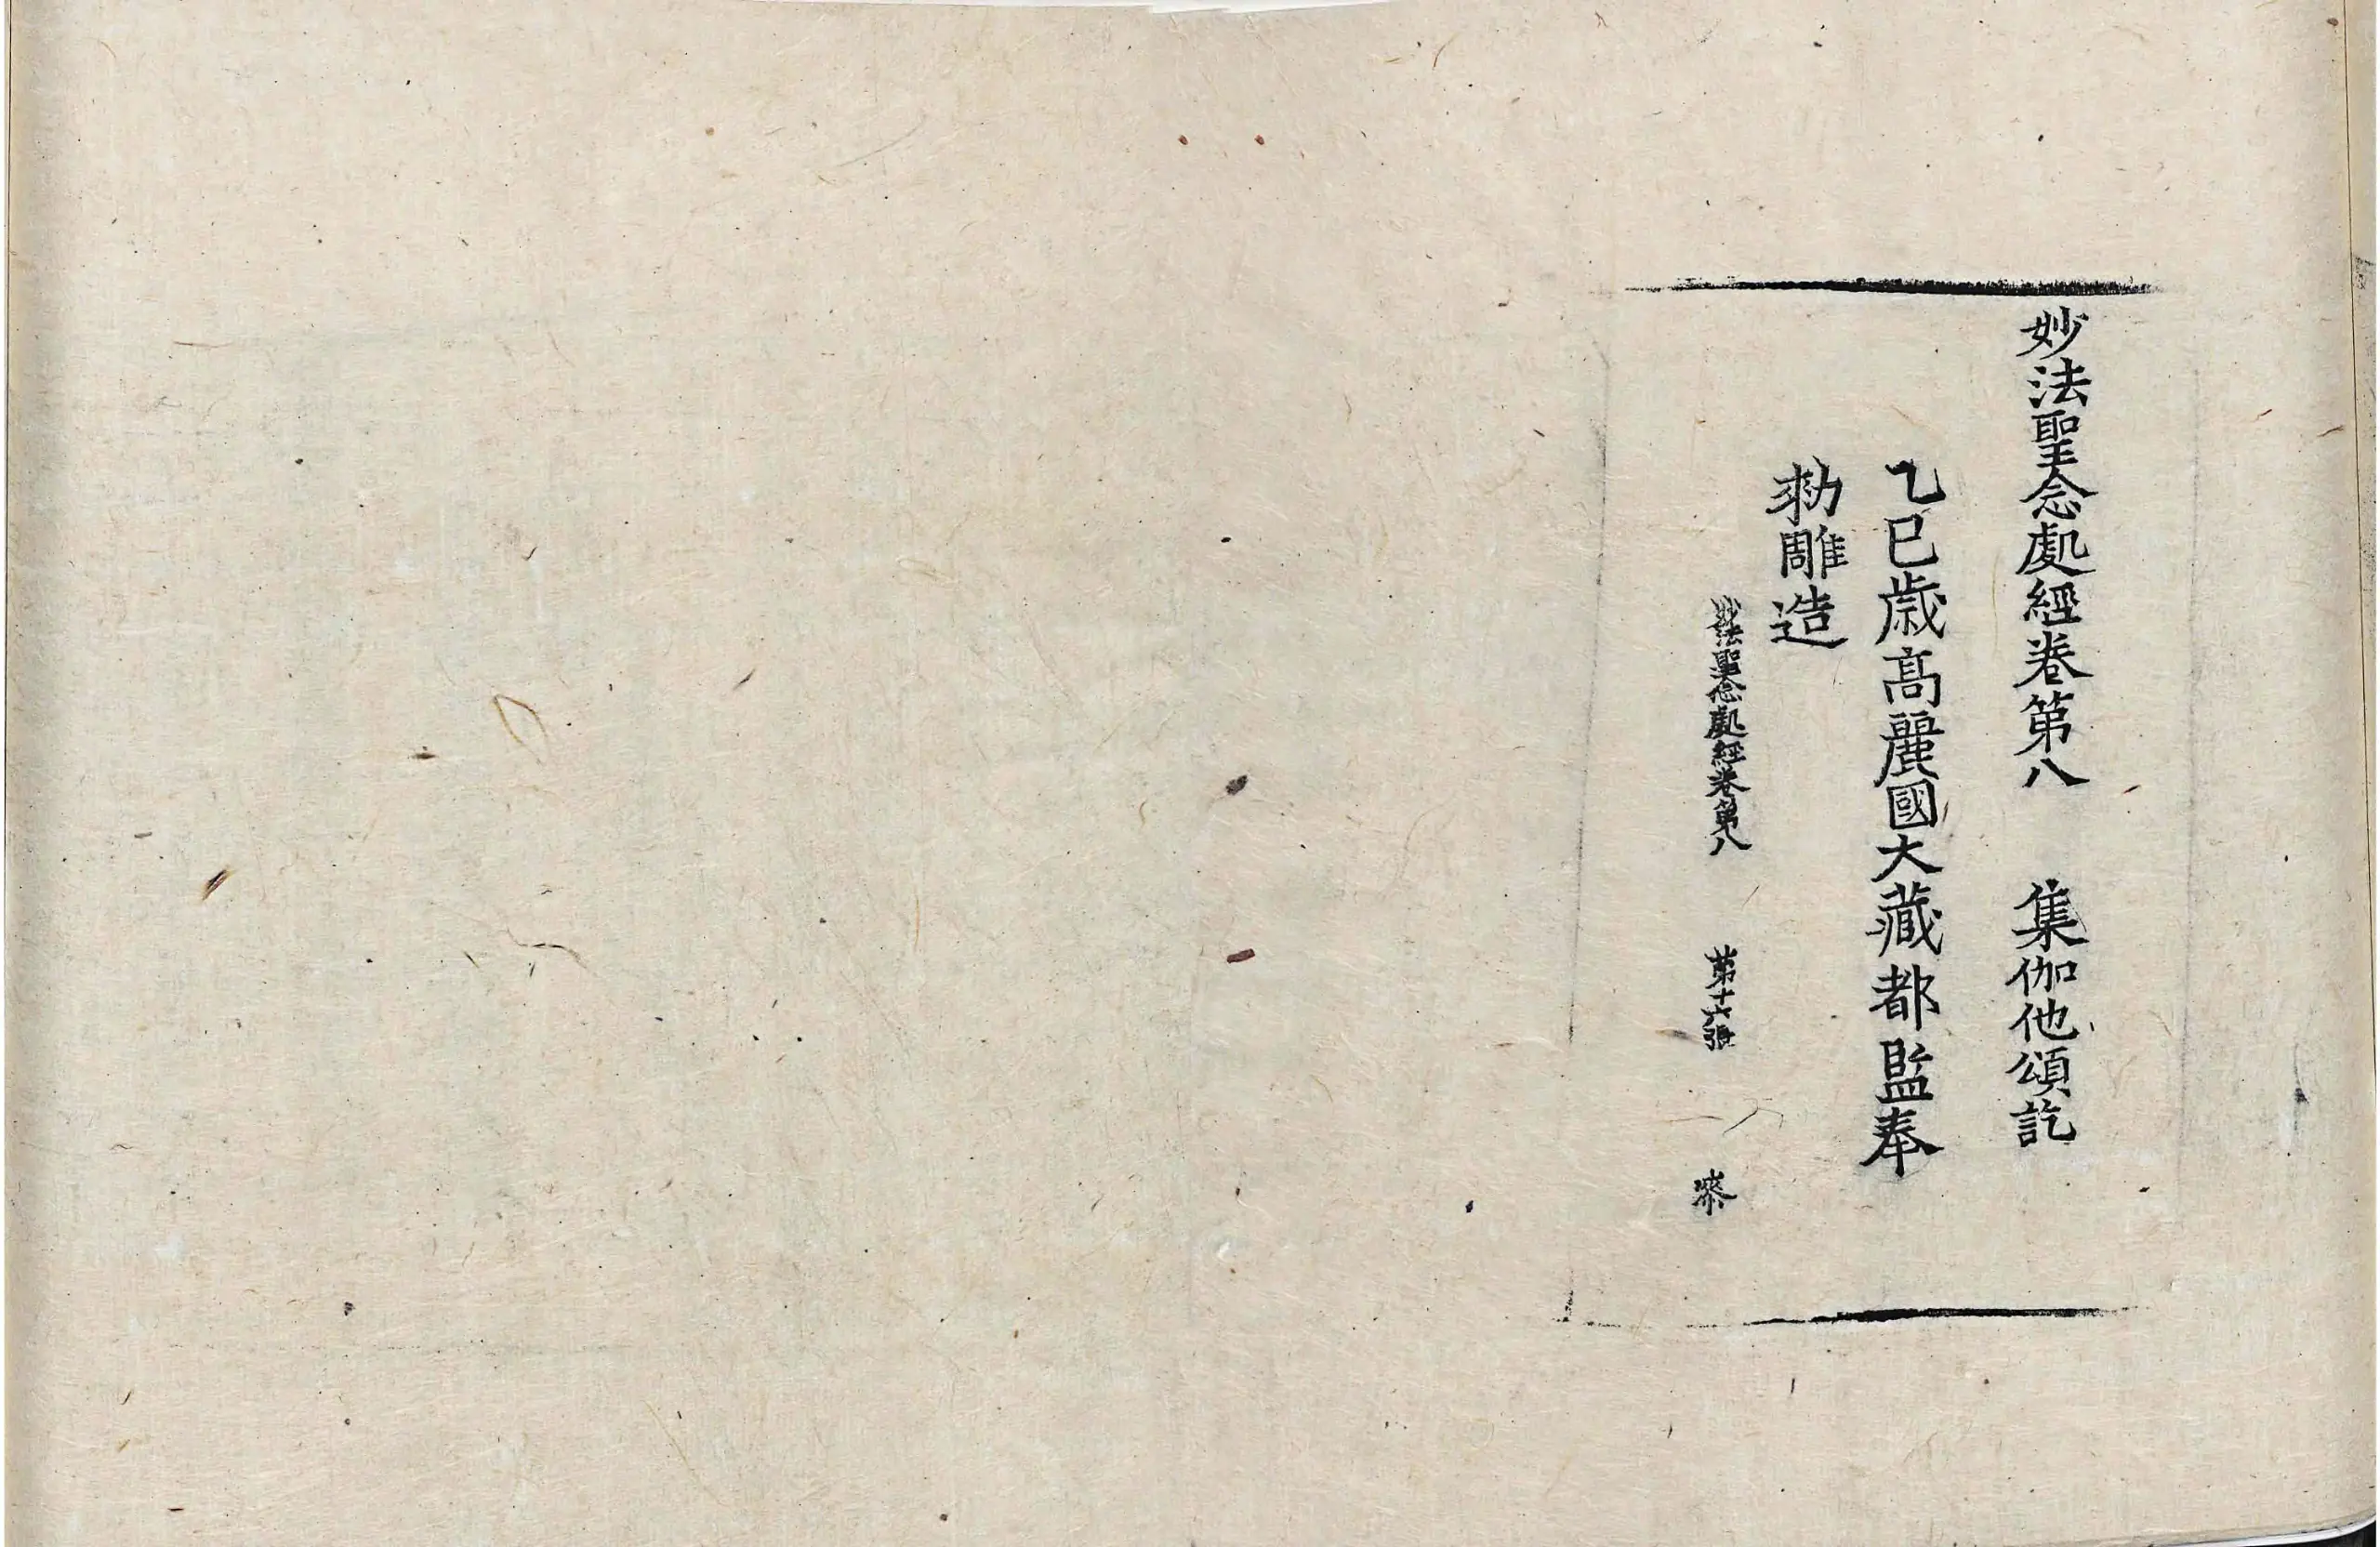 妙法聖念處經卷第八　集伽他頌訖
乙巳歲高麗國大藏都監奉
勑雕造
妙法聖念處經卷第八　第十六張